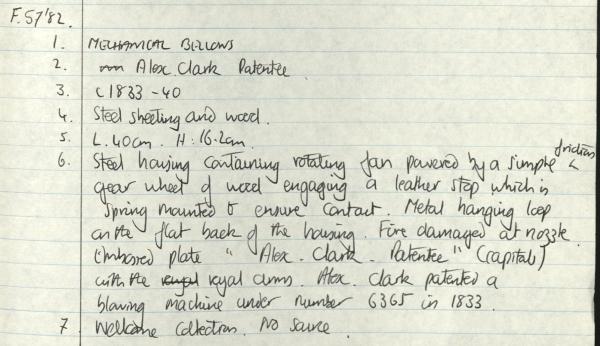 F.57'82.
1. MECHANICAL BELLOWS
2. Alex Clark Patentee
3. c1833-40
4. Steel sheeting and wood.
5. L. 40cm. H: 16.2cm.
6. Steel housing containing rotating fan powered by a simple friction
gear wheel of wood engaging a leather stop which is
spring mounted to ensure contact. Metal hanging loop
on the flat back of the housing. Fire damaged at nozzle.
Embossed plate "Alex. Clark. Patentee" (capitals)
with the royal arms. Alex. Clark patented a
blowing machine under number 6365 in 1833.
7 Wellcome Collection. No Source.